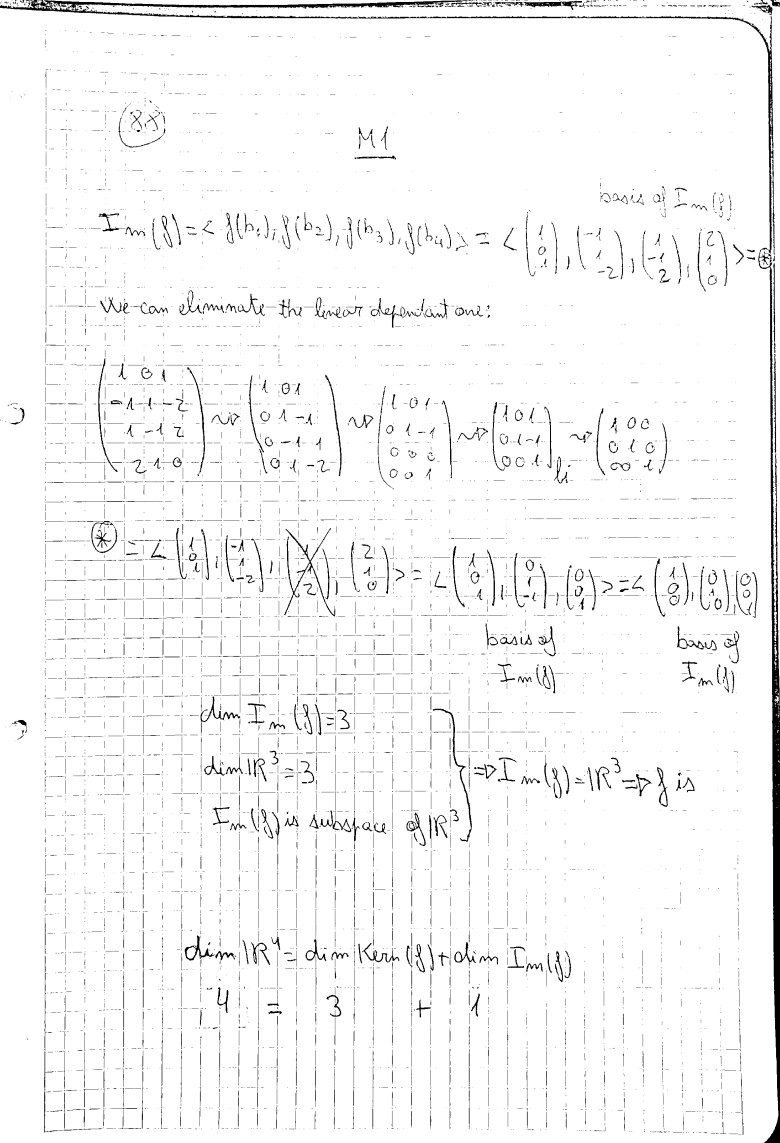 8.8
M1
basis of Im(f)
Im(f) = < f(b₁), f(b₂), f(b₃), f(b₄) > = < (1 0 1), (-1 1 -2), (1 -1 2), (2 1 0) > = ⊛
We can eliminate the linear dependant one:
(1 0 1 / -1 1 -2 / 1 -1 2 / 2 1 0) ~> (1 0 1 / 0 1 -1 / 0 -1 1 / 0 1 -2) ~> (1 0 1 / 0 1 -1 / 0 0 0 / 0 0 1) ~> (1 0 1 / 0 1 -1 / 0 0 1) li ~> (1 0 0 / 0 1 0 / 0 0 1)
⊛ = < (1 0 1), (-1 1 -2), (1 -1 2), (2 1 0) > = < (1 0 1), (0 1 -1), (0 0 1) > = < (1 0 0), (0 1 0), (0 0 1)
basis of basis of
Im(f) Im(f)
dim Im(f) = 3
dim ℝ³ = 3
Im(f) is subspace of ℝ³ } => Im(f) = ℝ³ => f is
dim ℝ⁴ = dim Kern(f) + dim Im(f)
4 = 3 + 1